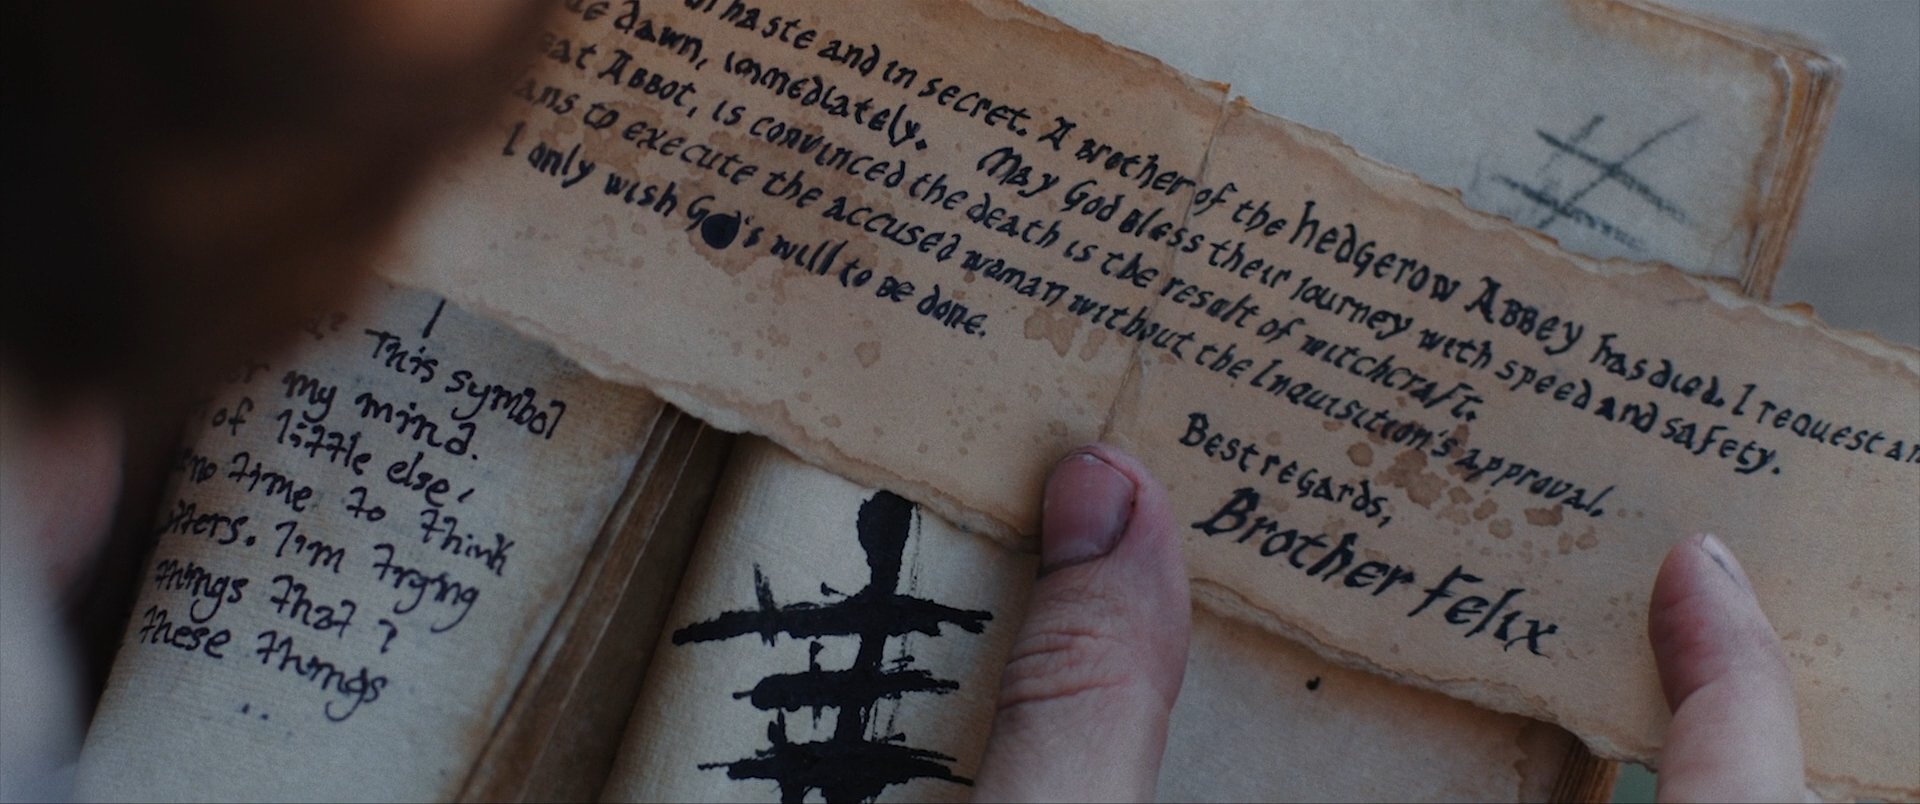 in haste and in secret. A Brother of the Hedgerow Abbey has died. I request an
dawn, immediately. May God Bless their journey with speed and safety.
Abbot, is convinced the death is the result of witchcraft.
to execute the accused woman without the Inquisition's approval.
I only wish God's will to be done.
Best regards,
Brother Felix
This symbol
my mind.
of little else,
no time to think
I'm trying
things that ?
these things